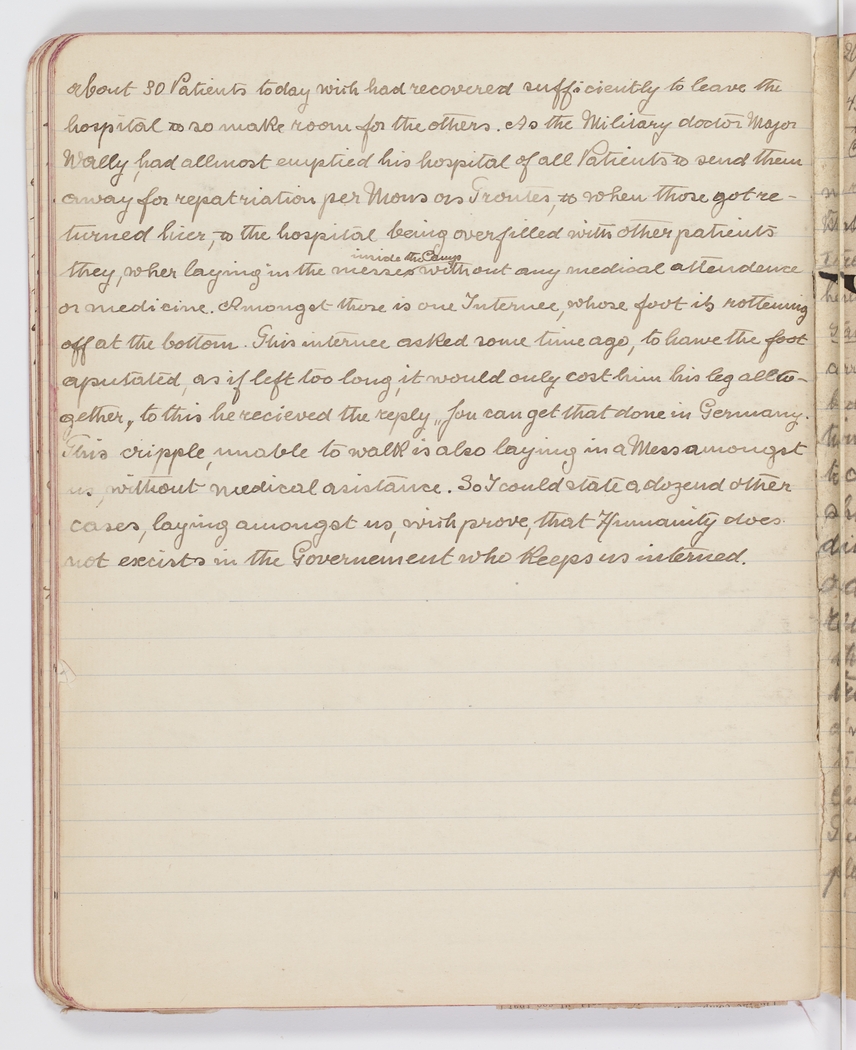 about 30 Patients today wich had recovered sufficiently to leave the
hospital & so make room for the others. As the Military doctor Major
Wally, had allmost emptied his hospital of all Patients & send them
away for repatriation per Mons ors Trontes, & when those got re-
turned hier, & the hospital being overfilled with other patients
inside the Camp
they, wher laying in the messes without any medical attendence
or medicine. Amongst those is one Internee, whose foot is rottening
off at the bottom. This internee asked some time ago, to hawe the foot
aputated, as if left too long, it would only cost him his leg allto-
gether, to this he recieved the reply „You can get that done in Germany.
This cripple, unable to walk is also laying in a Mess amongst
us, without medical asistance. So I could state a dozend other
cases, laying amongst us, wich prove, that Humanity does
not excists in the Governement who keeps us interned.